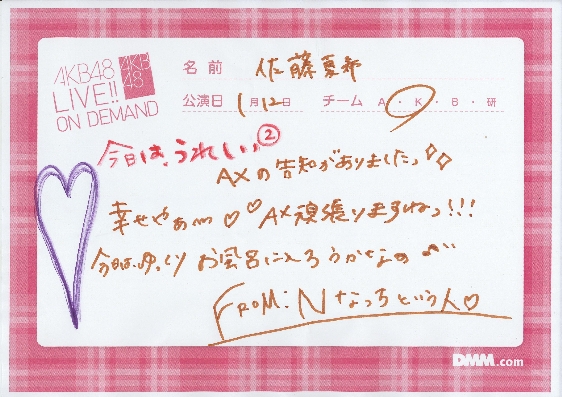 AKB48
LIVE!!
ON DEMAND
AKB
48
名前 佐藤夏希
公演日 1月12日 チーム A・K・B・研
今日は、うれしい②
AXの告知がありましたっ
幸せやぁ♡♡AX頑張りますねっ!!!
今日は、ゆっくりお風呂に入ろうかなの
FROM:Nなっちという人♡
DMM.com